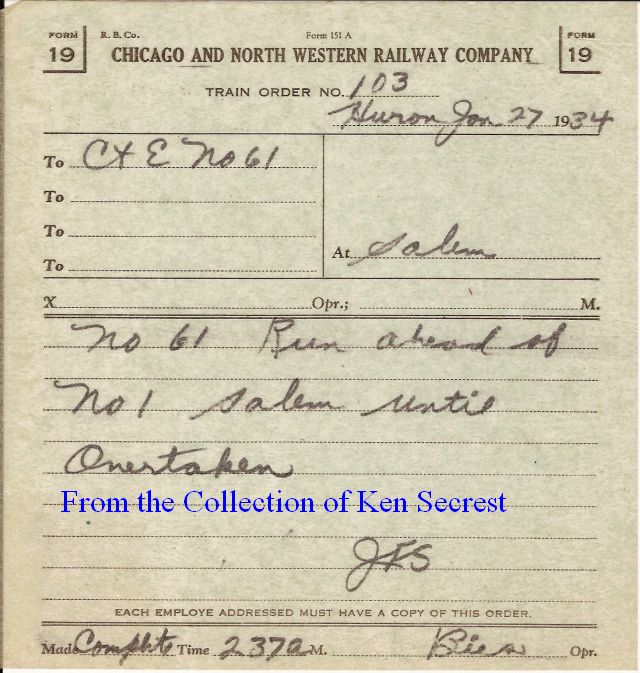 FORM 19 R. B. Co. Form 151 A FORM 19
CHICAGO AND NORTH WESTERN RAILWAY COMPANY
TRAIN ORDER NO. 103
Huron Jan 27 1934
To C+E No 61
To
To
To
At Salem
X Opr.; M.
No 61 Run ahead of
No 1 Salem until
Overtaken
From the Collection of Ken Secrest
JFS
EACH EMPLOYE ADDRESSED MUST HAVE A COPY OF THIS ORDER.
Made Complete Time 237a M. Opr.